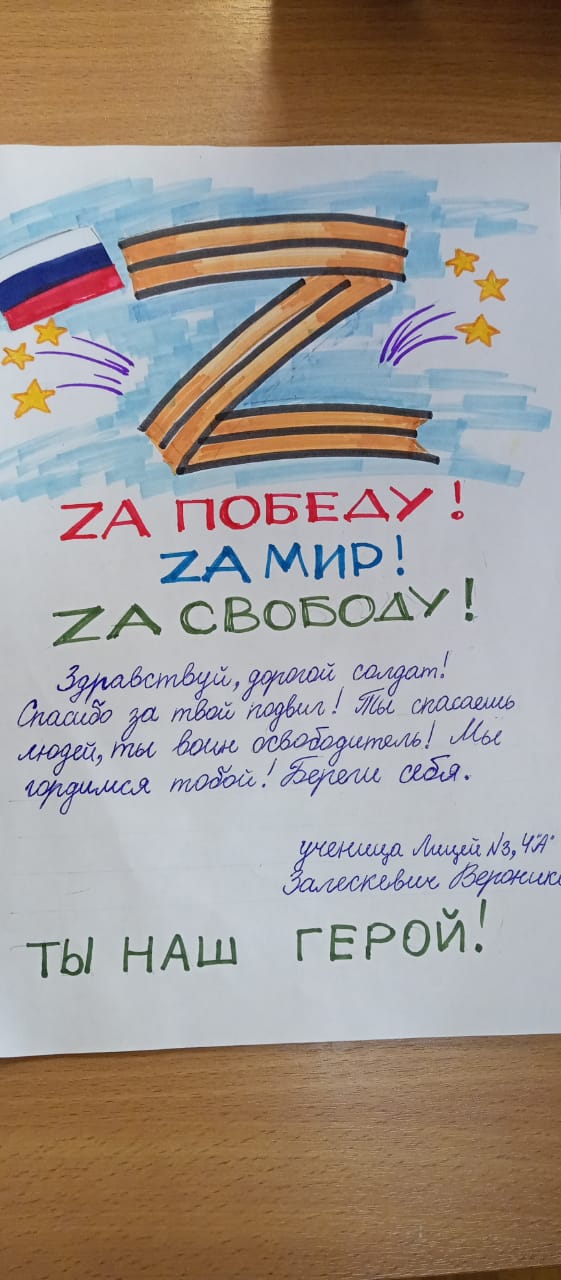 ZА ПОБЕДУ!
ZА МИР!
ZА СВОБОДУ!
Здравствуй, дорогой солдат!
Спасибо за твой подвиг! Ты спасаешь
людей, ты воин освободитель! Мы
гордимся тобой! Береги себя.
ученица Лицей №3, 4"А"
Залескевич Вероника
ТЫ НАШ ГЕРОЙ!